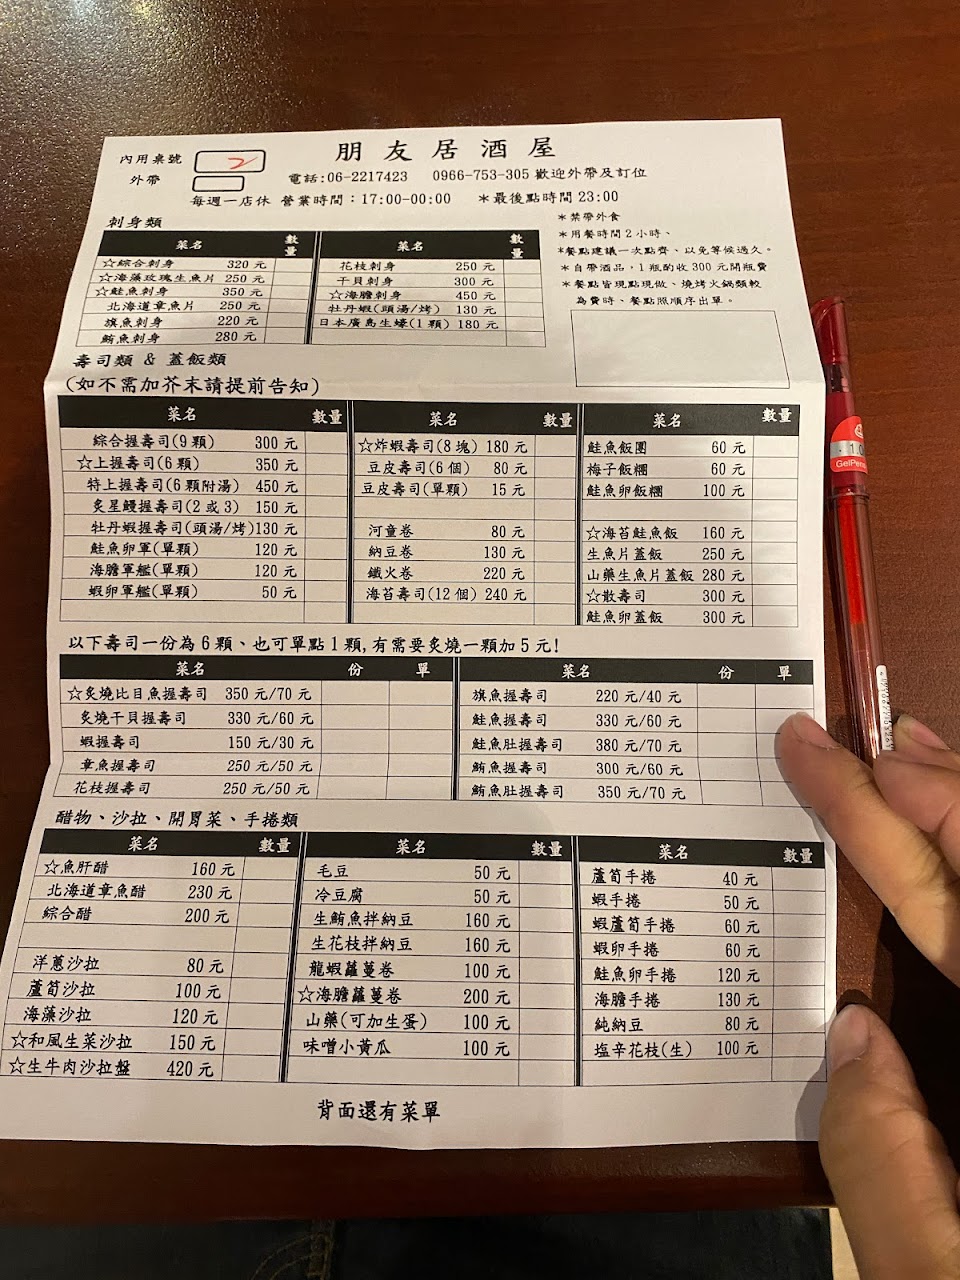 朋友居酒屋
內用桌號 2
外帶
電話:06-2217423 0966-753-305 歡迎外帶及訂位
每週一店休 營業時間:17:00-00:00 *最後點時間 23:00
*禁帶外食
*用餐時間2小時、
*餐點建議一次點齊、以免等候過久。
*自帶酒品,1瓶酌收300元開瓶費
*餐點皆現點現做、燒烤火鍋類較
為費時、餐點照順序出單。
刺身類
菜名 數量
☆綜合刺身 320 元
☆海藻玫瑰生魚片 250 元
☆鮭魚刺身 350 元
北海道章魚片 250 元
旗魚刺身 220 元
鮪魚刺身 280 元
菜名 數量
花枝刺身 250 元
干貝刺身 300 元
☆海膽刺身 450 元
牡丹蝦(頭湯/烤) 130 元
日本廣島生蠔(1顆) 180 元
壽司類 & 蓋飯類
(如不需加芥末請提前告知)
菜名 數量
綜合握壽司(9顆) 300 元
☆上握壽司(6顆) 350 元
特上握壽司(6顆附湯) 450 元
炙星鰻握壽司(2或3) 150 元
牡丹蝦握壽司(頭湯/烤)130 元
鮭魚卵軍(單顆) 120 元
海膽軍艦(單顆) 120 元
蝦卵軍艦(單顆) 50 元
菜名 數量
☆炸蝦壽司(8塊) 180 元
豆皮壽司(6個) 80 元
豆皮壽司(單顆) 15 元
河童卷 80 元
納豆卷 130 元
鐵火卷 220 元
海苔壽司(12個) 240 元
菜名 數量
鮭魚飯團 60 元
梅子飯糰 60 元
鮭魚卵飯糰 100 元
☆海苔鮭魚飯 160 元
生魚片蓋飯 250 元
山藥生魚片蓋飯 280 元
☆散壽司 300 元
鮭魚卵蓋飯 300 元
以下壽司一份為6顆、也可單點1顆,有需要炙燒一顆加5元!
菜名 份 單
☆炙燒比目魚握壽司 350 元/70 元
炙燒干貝握壽司 330 元/60 元
蝦握壽司 150 元/30 元
章魚握壽司 250 元/50 元
花枝握壽司 250 元/50 元
菜名 份 單
旗魚握壽司 220 元/40 元
鮭魚握壽司 330 元/60 元
鮭魚肚握壽司 380 元/70 元
鮪魚握壽司 300 元/60 元
鮪魚肚握壽司 350 元/70 元
醋物、沙拉、開胃菜、手捲類
菜名 數量
☆魚肝醋 160 元
北海道章魚醋 230 元
綜合醋 200 元
洋蔥沙拉 80 元
蘆筍沙拉 100 元
海藻沙拉 120 元
☆和風生菜沙拉 150 元
☆生牛肉沙拉盤 420 元
菜名 數量
毛豆 50 元
冷豆腐 50 元
生鮪魚拌納豆 160 元
生花枝拌納豆 160 元
龍蝦蘿蔓卷 100 元
☆海膽蘿蔓卷 200 元
山藥(可加生蛋) 100 元
味噌小黃瓜 100 元
菜名 數量
蘆筍手捲 40 元
蝦手捲 50 元
蝦蘆筍手捲 60 元
蝦卵手捲 60 元
鮭魚卵手捲 120 元
海膽手捲 130 元
純納豆 80 元
塩辛花枝(生) 100 元
背面還有菜單